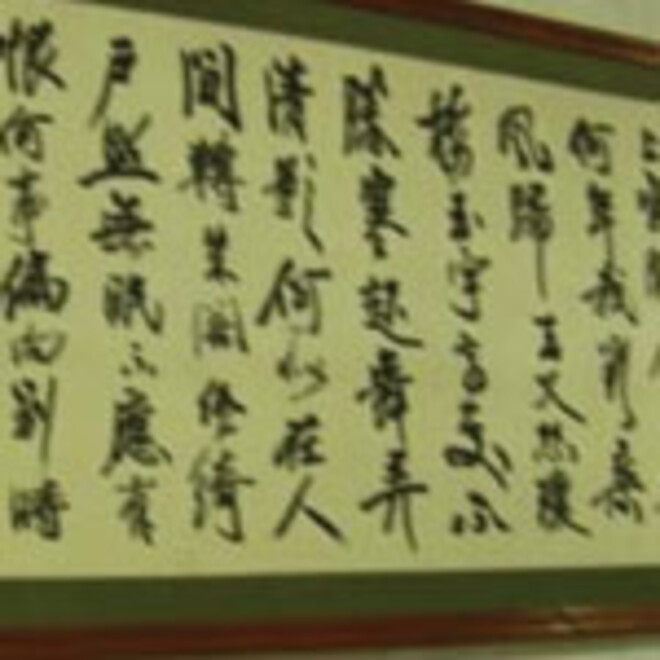 何年我欲乘
風歸去又恐瓊
樓玉宇高處不
勝寒起舞弄
清影何似在人
間轉朱閣低綺
戶照無眠不應有
恨何事偏向別時